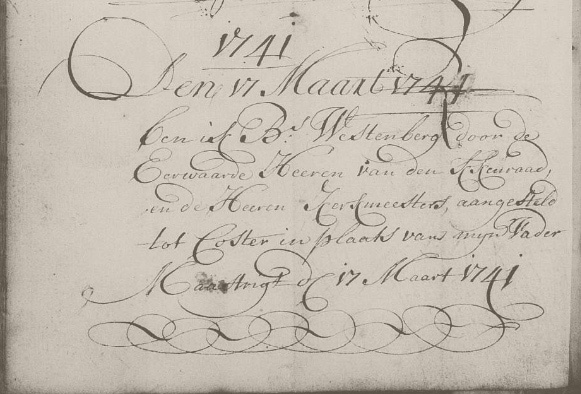 1741
Den 17 Maart 1741
ben ik B.s Westenberg door de
Eerwaarde Heeren van den Kerkenraad,
en de Heeren Kerkmeesters, aangesteld
tot Coster in plaats van mijn Vader
Maastrigt d 17 Maart 1741